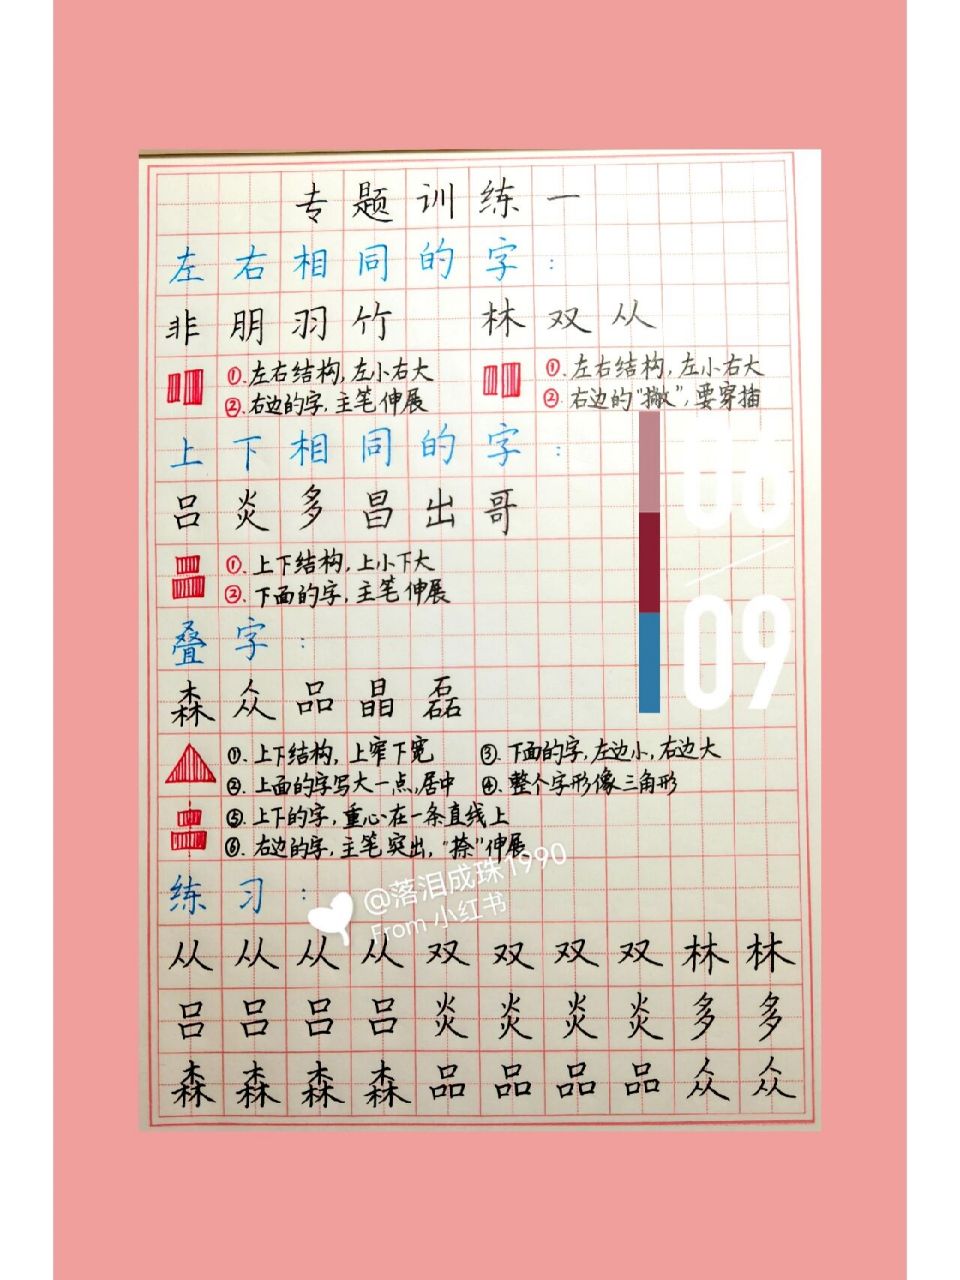 专题训练一
左右相同的字：
非朋羽竹 林双从
①.左右结构,左小右大 ①.左右结构,左小右大
②.右边的字,主笔伸展 ②.右边的“撇”,要穿插
上下相同的字：
06
吕炎多昌出哥
①.上下结构,上小下大
②.下面的字,主笔伸展
09
叠字：
森众品晶磊
①.上下结构,上窄下宽 ③.下面的字,左边小,右边大
②.上面的字写大一点,居中 ④.整个字形像三角形
⑤.上下的字,重心在一条直线上
⑥.右边的字,主笔突出,“捺”伸展
练习：
@落泪成珠1990
From 小红书
从从从从双双双双林林
吕吕吕吕炎炎炎炎多多
森森森森品品品品众众